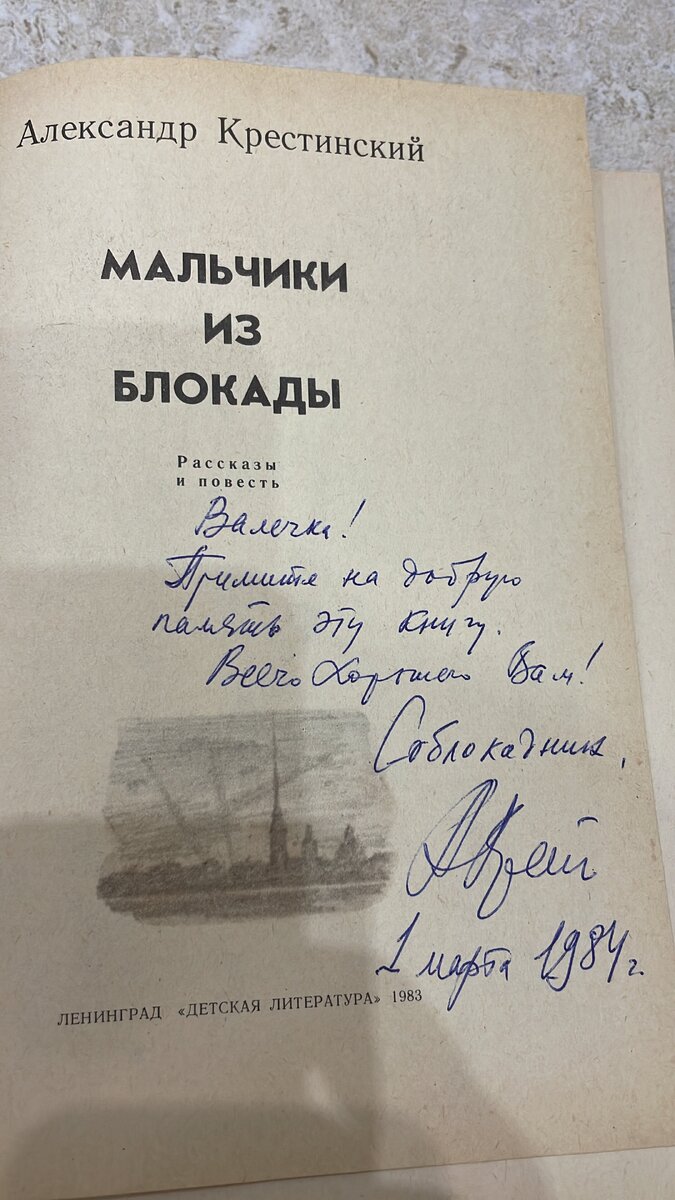 Александр Крестинский
МАЛЬЧИКИ
ИЗ
БЛОКАДЫ
Рассказы
и повесть
Валечка!
Примите на добрую
память эту книгу.
Всего хорошего Вам!
Соблокадник,
АКрест
1 марта 1984 г.
ЛЕНИНГРАД «ДЕТСКАЯ ЛИТЕРАТУРА» 1983